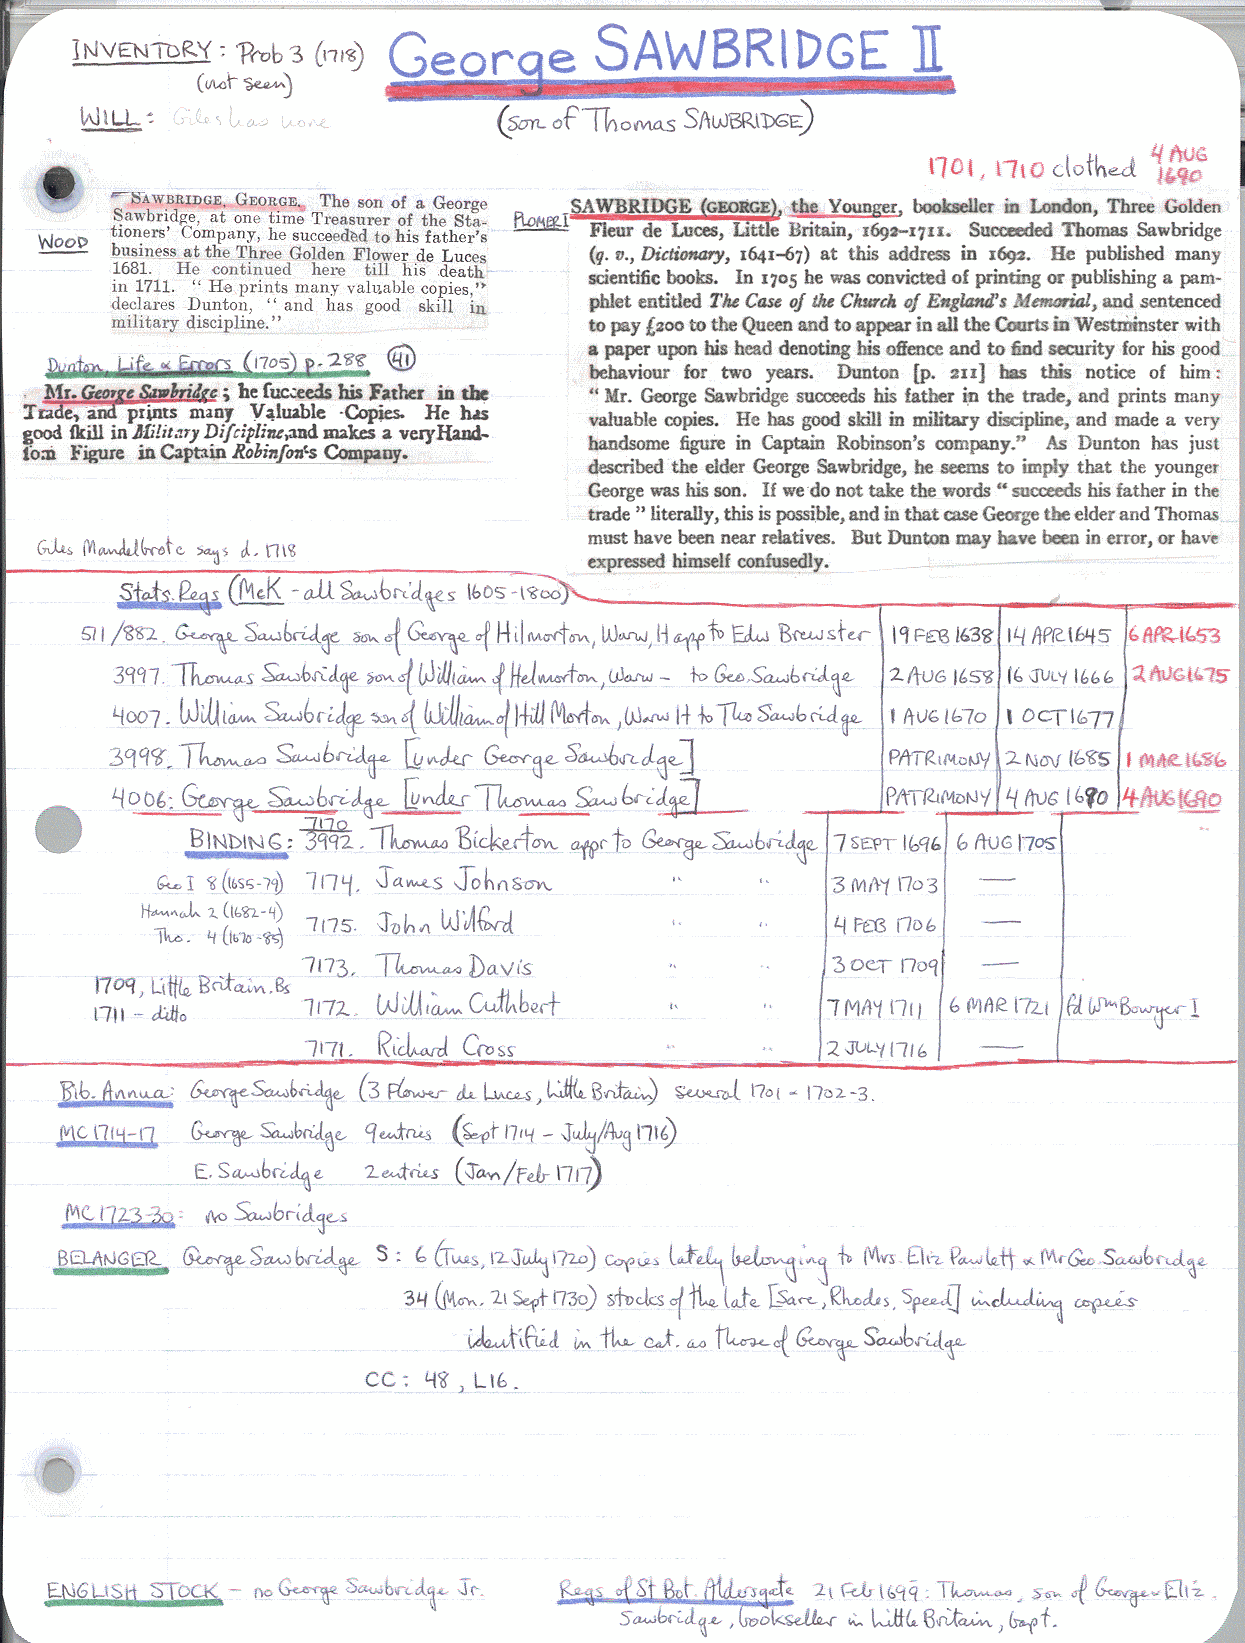 INVENTORY: Prob 3 (1718)
(not seen)
George SAWBRIDGE II
WILL: Giles has none
(son of Thomas SAWBRIDGE)
1701, 1710 clothed 4 AUG
1690
WOOD
SAWBRIDGE, GEORGE. The son of a George
Sawbridge, at one time Treasurer of the Sta-
tioners' Company, he succeeded to his father's
business at the Three Golden Flower de Luces
1681. He continued here till his death
in 1711. "He prints many valuable copies,"
declares Dunton, "and has good skill in
military discipline."
Dunton, Life & Errors (1705) p. 288 (41)
Mr. George Sawbridge; he ſucceeds his Father in the
Trade, and prints many Valuable Copies. He has
good ſkill in Military Diſcipline, and makes a very Hand-
ſom Figure in Captain Robinſon's Company.
Giles Mandelbrote says d. 1718
PLOMER I
SAWBRIDGE (GEORGE), the Younger, bookseller in London, Three Golden
Fleur de Luces, Little Britain, 1692–1711. Succeeded Thomas Sawbridge
(q. v., Dictionary, 1641–67) at this address in 1692. He published many
scientific books. In 1705 he was convicted of printing or publishing a pam-
phlet entitled The Case of the Church of England's Memorial, and sentenced
to pay £200 to the Queen and to appear in all the Courts in Westminster with
a paper upon his head denoting his offence and to find security for his good
behaviour for two years. Dunton [p. 211] has this notice of him:
"Mr. George Sawbridge succeeds his father in the trade, and prints many
valuable copies. He has good skill in military discipline, and made a very
handsome figure in Captain Robinson's company." As Dunton has just
described the elder George Sawbridge, he seems to imply that the younger
George was his son. If we do not take the words "succeeds his father in the
trade" literally, this is possible, and in that case George the elder and Thomas
must have been near relatives. But Dunton may have been in error, or have
expressed himself confusedly.
Stats. Regs (McK - all Sawbridges 1605-1800)
511/882. George Sawbridge son of George of Hilmorton, Warw, H app to Edw Brewster 19 FEB 1638 14 APR 1645 6 APR 1653
3997. Thomas Sawbridge son of William of Helmorton, Warw - to Geo. Sawbridge 2 AUG 1658 16 JULY 1666 2 AUG 1675
4007. William Sawbridge son of William of Hill Morton, Warw H to Tho Sawbridge 1 AUG 1670 1 OCT 1677
3998. Thomas Sawbridge [under George Sawbridge] PATRIMONY 2 NOV 1685 1 MAR 1686
4006: George Sawbridge [under Thomas Sawbridge] PATRIMONY 4 AUG 1690 4 AUG 1690
7170
BINDING: 3992. Thomas Bickerton appr to George Sawbridge 7 SEPT 1696 6 AUG 1705
Geo I 8 (1655-79) 7174. James Johnson " " 3 MAY 1703 —
Hannah 2 (1682-4)
7175. John Wilford " " 4 FEB 1706 —
Tho. 4 (1670-85)
7173. Thomas Davis " " 3 OCT 1709 —
1709, Little Britain, Bs
7172. William Cuthbert " " 7 MAY 1711 6 MAR 1721 fd Wm Bowyer I
1711 - ditto
7171. Richard Cross " " 2 JULY 1716 —
Bib. Annua: George Sawbridge (3 Flower de Luces, Little Britain) several 1701 - 1702-3.
MC 1714-17 George Sawbridge 9 entries (Sept 1714 - July/Aug 1716)
E. Sawbridge 2 entries (Jan/Feb 1717)
MC 1723-30: no Sawbridges
BELANGER George Sawbridge S: 6 (Tues, 12 July 1720) copies lately belonging to Mrs. Eliz Pawlett & Mr Geo. Sawbridge
34 (Mon. 21 Sept 1730) stocks of the late [Sare, Rhodes, Speed] including copies
identified in the cat. as those of George Sawbridge
CC: 48, L16.
ENGLISH STOCK - no George Sawbridge Jr.
Regs of St Bot. Aldersgate 21 Feb 1699: Thomas, son of George & Eliz.
Sawbridge, bookseller in Little Britain, bapt.